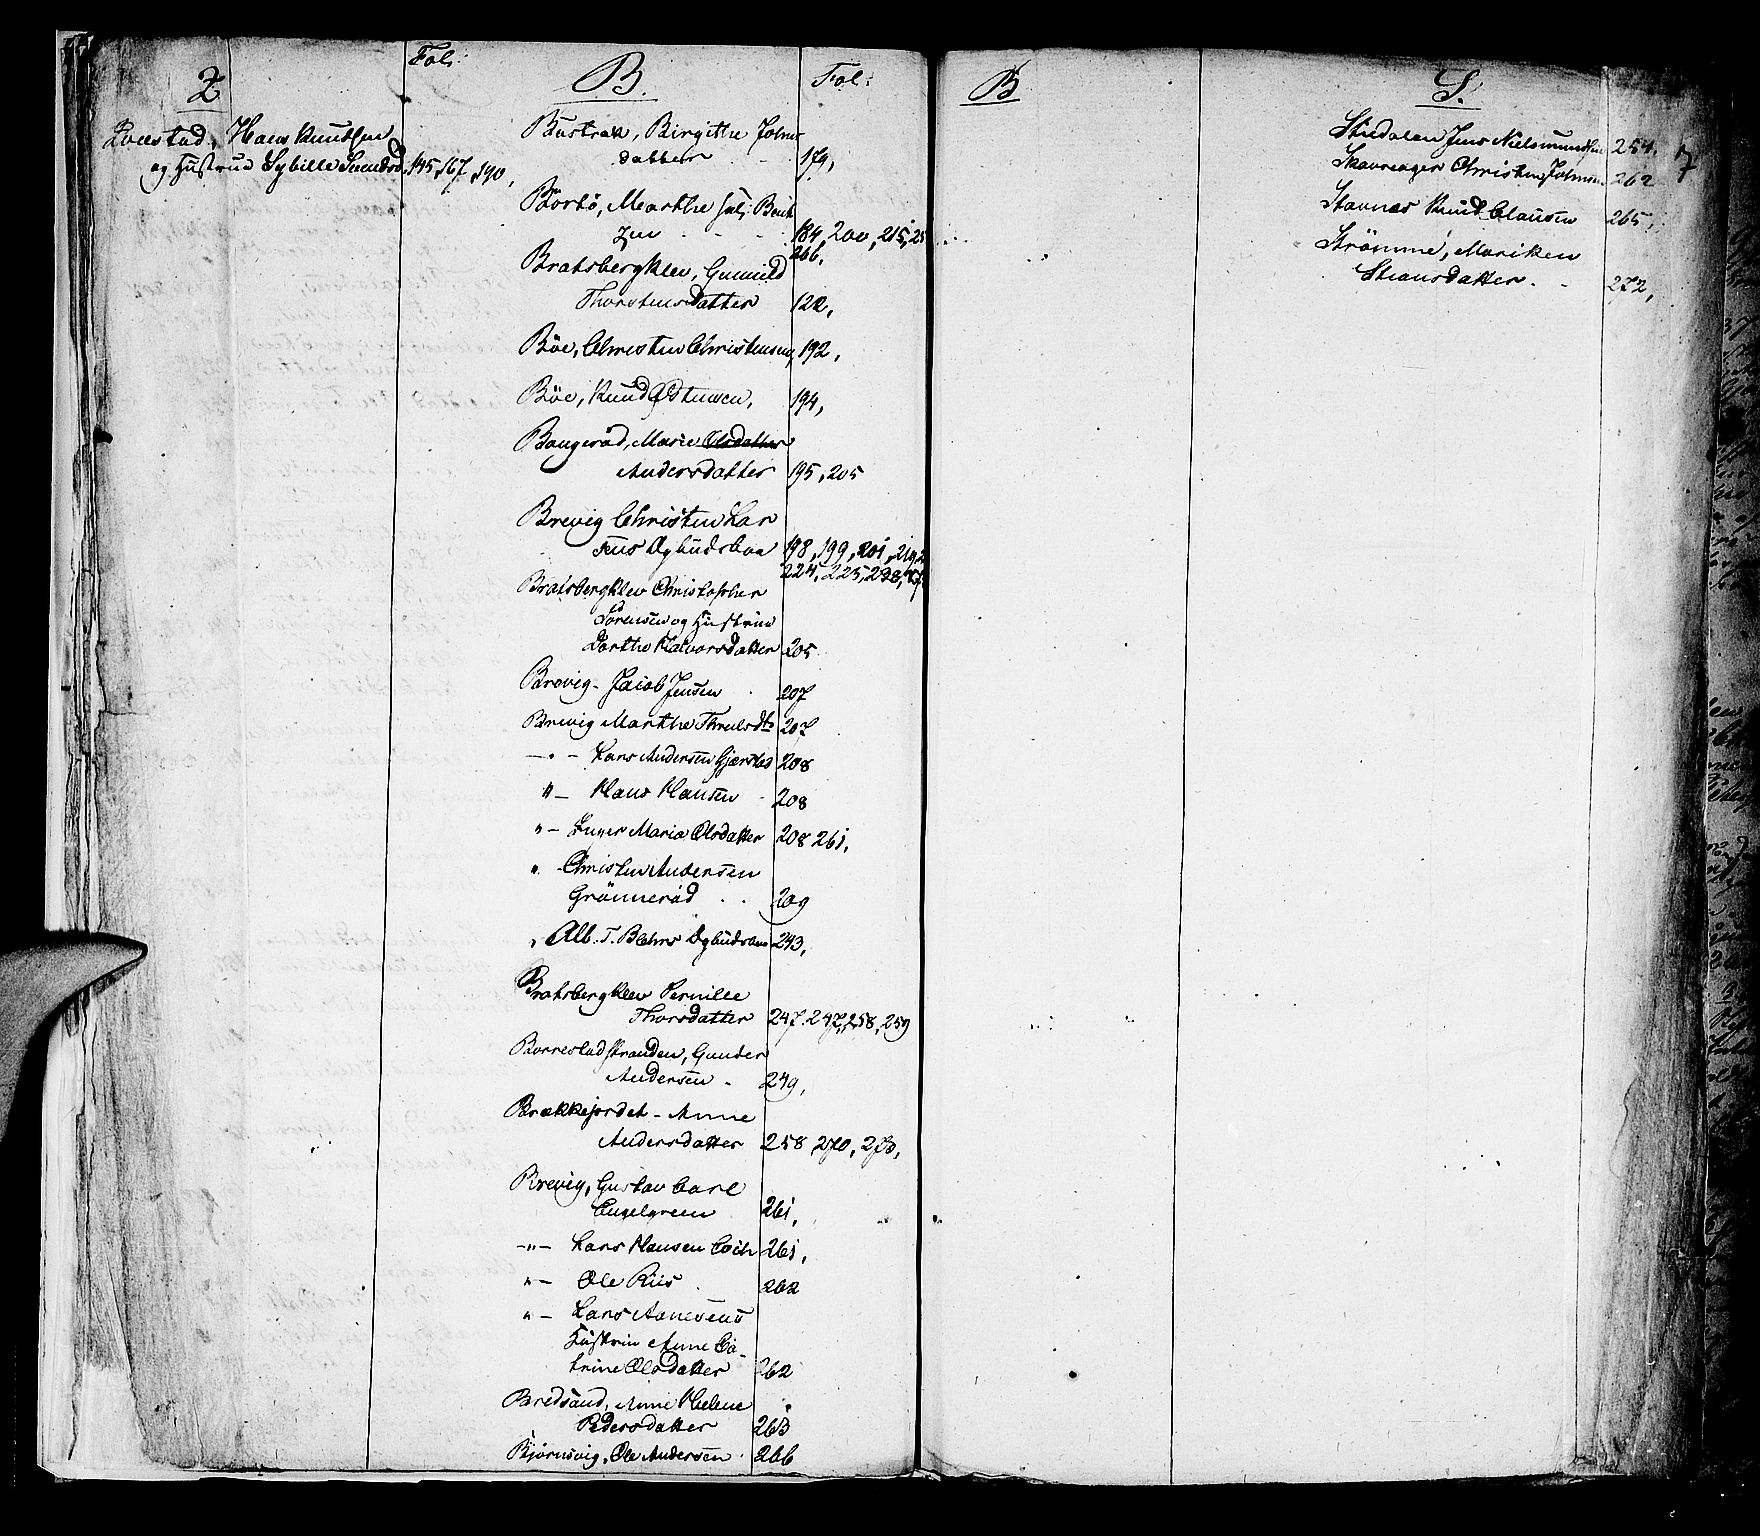 Z
Fol:
Hans Knudsen
og Hustrue Sybille 145, 167, 190,
B.
Fol:
Birgithe Johns
datter 179,
Börtö, Marthe sal: Bent
zen 184, 200, 215, 25
266,
Bratsbergklev, Gunnild
Thorstensdatter 122,
Böe, Christen Christensen, 192,
Böe, Knud Østensen, 194,
Baugeröd, Marie Olsdatter
Andersdatter 195, 205
Brevig Christen Lar
sens Opbudsboe 198, 199, 201, 219, 2
224, 225, 238,
Bratsbergklev Christopher
Sörensen og Hustrue
Dorthe Halvorsdatter 205
Brevig - Jacob Jensen 207
Brevig Marthe Thrulsdtr 207
— " — Lars Andersen Gjerstad 208
" — Hans Hansen 208
" — Inger Maria Olsdatter 208 261,
" - Christen Andersen
Grönneröd 209
" Alb. T. Blehrs Opbudsboe 243,
Bratsbergklev Pernille
Thorsdatter 247. 247, 258, 259
Borrestadstranden, Gunder
Andersen - 249,
Brækkejordet - Anne
Andersdatter 258, 270, 273,
Brevig, Gustav Carl
Engelgreen 261,
— " — Lars Hansen Coch 261,
" — Ole Riis 262
" — Lars Aanesens
Hustrue Anne Ca-
trine Olsdatter 262
Bredsand, Anne Helene
Pedersdatter 263
Bjørnsvig, Ole Andersen 266
B
S.
7
Stedalen Jens Nielsmundsen 254,
Skavrager Christen Johnsen 262
Stavnæs Knud Clausen 265,
Strömme, Mariken
Steansdatter - 272,